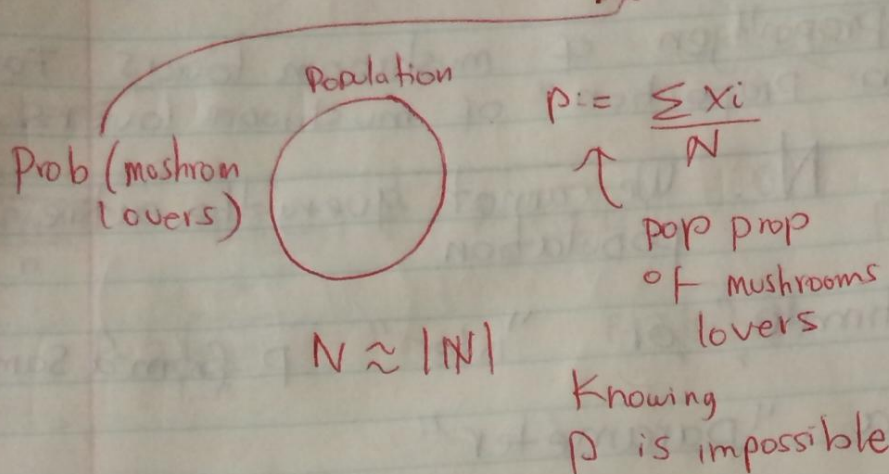 Population
Prob (moshrom
lovers)
p := Σ xi / N
↑
pop prop
of mushrooms
lovers
N ≈ |ℕ|
Knowing
p is impossible